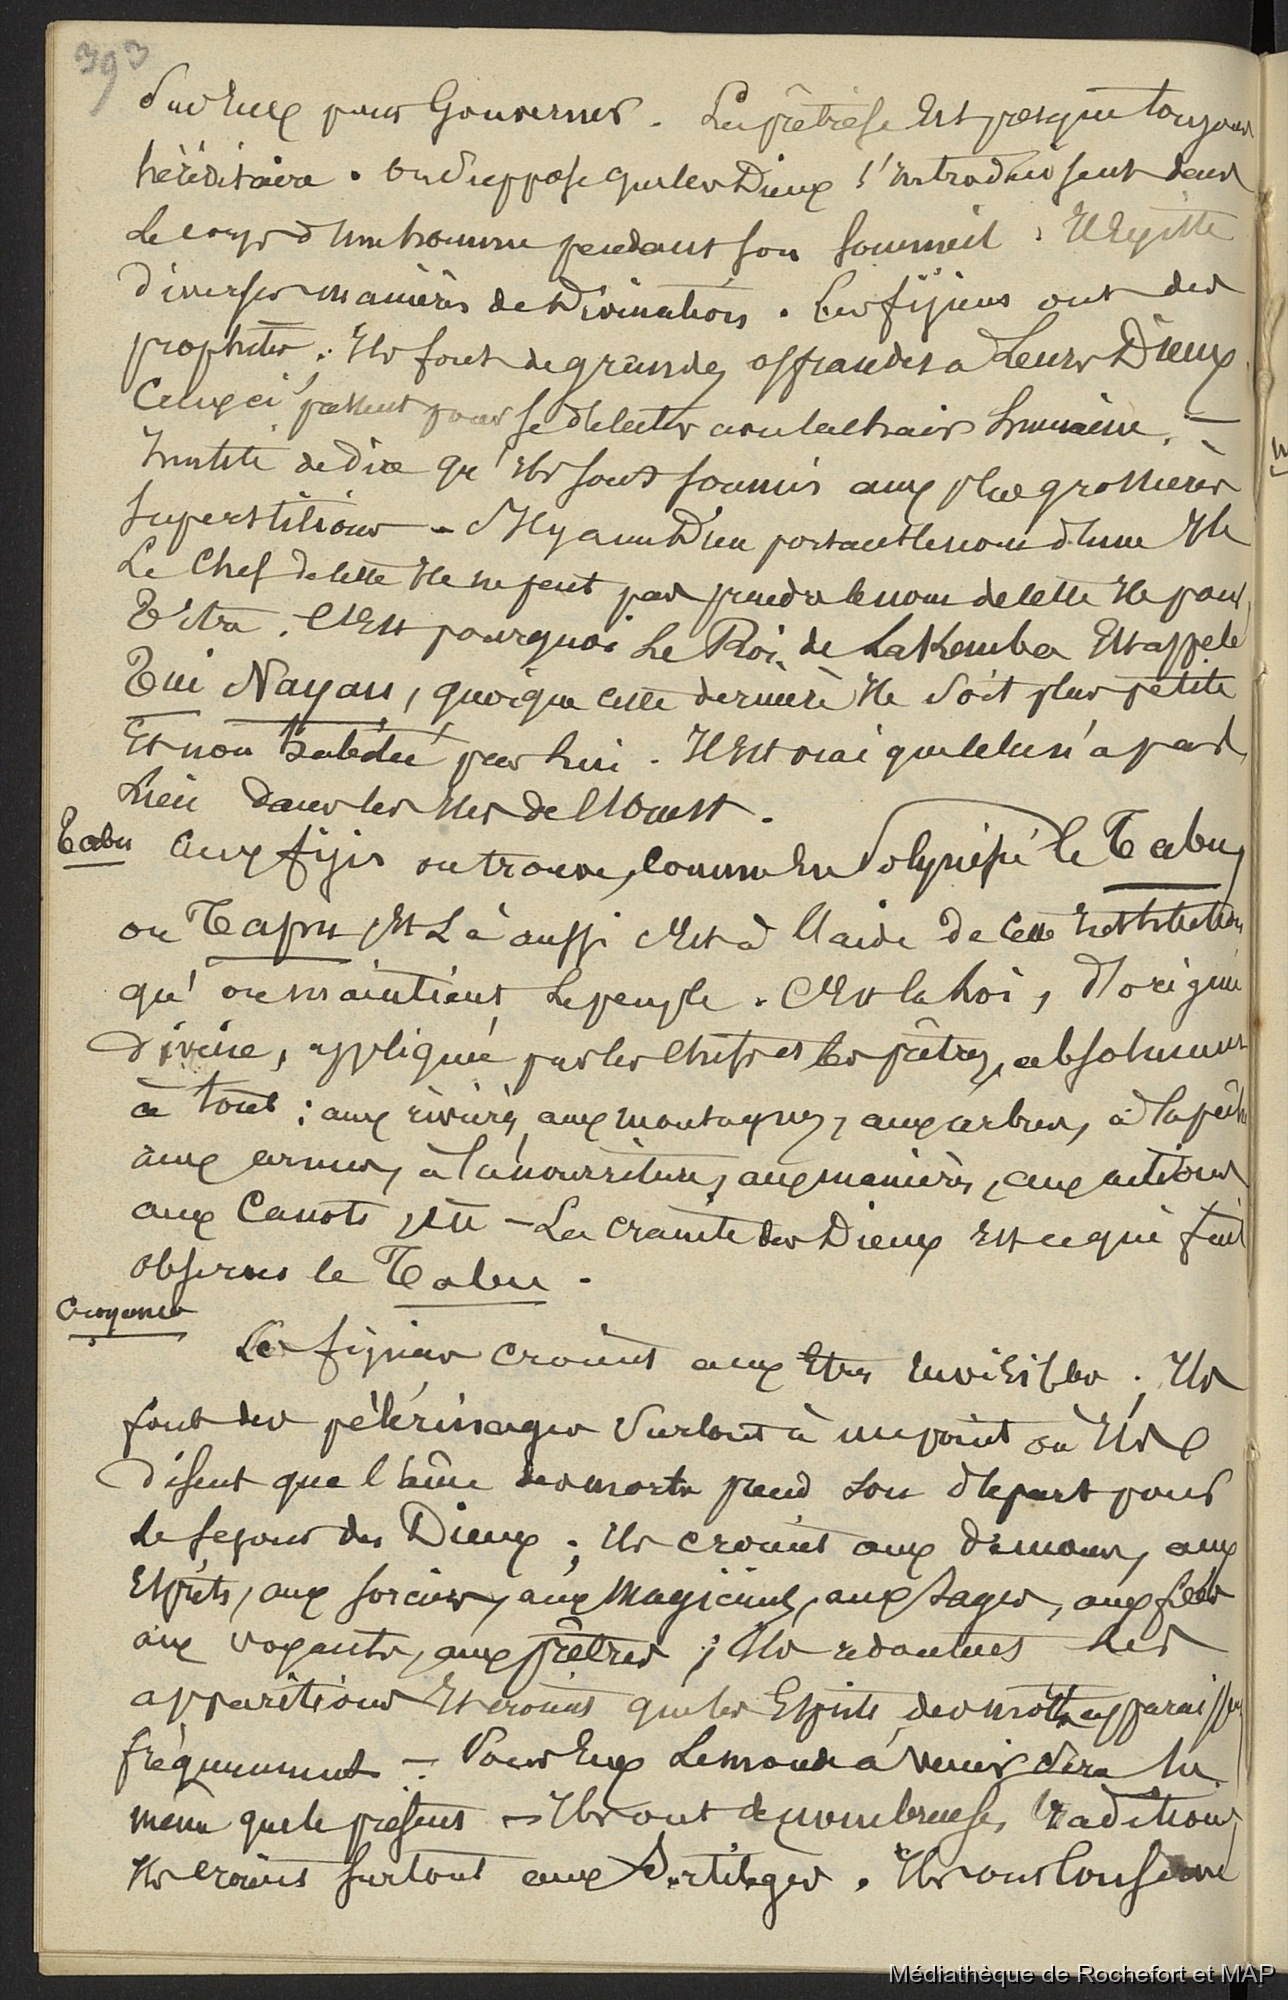 393
sur eux pour Gouverner. La prêtrise Est presque toujours
héréditaire. On suppose que les Dieux s'introduisent dans
Le corps d'un homme pendant son sommeil. Il Existe
diverses manières de Divination. Les fijiens ont des
prophètes. Ils font de grandes offrandes à Leurs Dieux.
Ceux ci passent pour se délecter avec la chair humaine. —
Inutile de dire qu'ils sont soumis aux plus grossières
superstitions — Il y a un Dieu portant le nom d'une Ile
Le Chef de cette Ile ne peut pas prendre le nom de cette Ile pour
Titre. C'Est pourquoi Le Roi de Lakemba Est appelé
Tui Nayau, quoique cette dernière Ile soit plus petite
Et non subdué par lui. Il Est vrai que cela n'a pas
Lieu dans les Iles de l'Ouest.
Tabu
Aux fijis on trouve, comme En Polynésie le Tabu,
ou Tapu, Et Là aussi c'Est à l'aide de cette Institution
qu'on maintient le peuple. C'Est la Loi, d'origine
divine, appliquée par les Chefs et les prêtres, absolument
à tout : aux rivières, aux montagnes, aux arbres, à la pêche
aux armes, à la nourriture, aux manières, aux actions
aux Canots, Etc — La crainte des Dieux Est ce qui fait
observer le Tabu.
Croyances
Les fijiens croient aux Etres invisibles ; Ils
font des pélérinages surtout à un point où Ils
disent que l'âme des morts prend son départ pour
le séjour des Dieux ; Ils croient aux démons, aux
Esprits, aux sorciers, aux Magiciens, aux sages, aux fées
aux voyants, aux prêtres ; Ils redoutent les
apparitions Et croient que les Esprits des morts apparaissent
fréquemment — Pour Eux Le monde à venir sera le
même que le présent — Ils ont de nombreuses traditions
Ils croient surtout aux Sortilèges. Ils ont conservé
Médiathèque de Rochefort et MAP